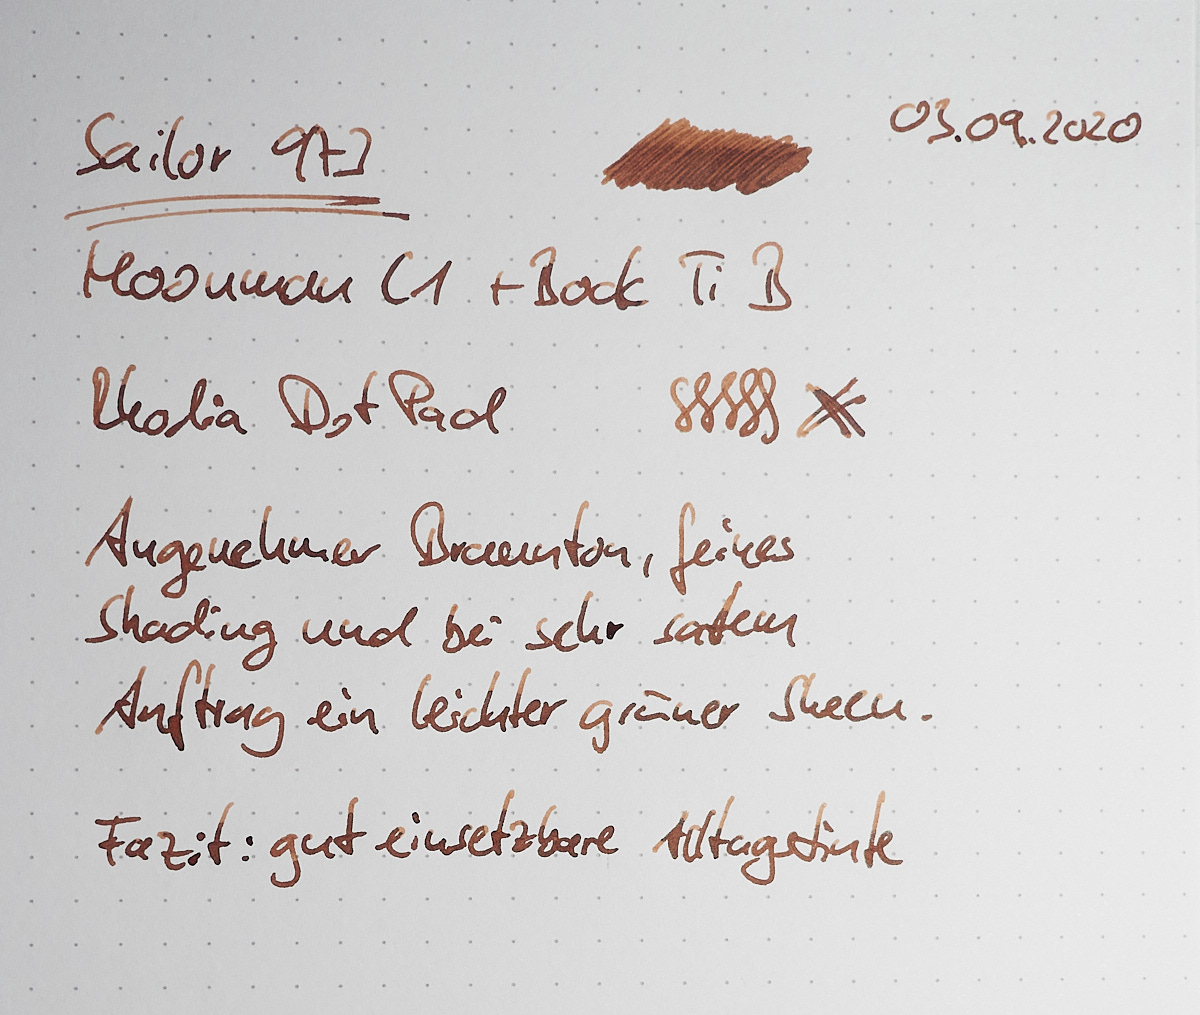 Sailor 973
03.09.2020
Moonman C1 + Bock Ti B
Rhodia Dot Pad
Angenehmer Braunton, feines
Shading und bei sehr sattem
Auftrag ein leichter grüner Sheen.
Fazit: gut einsetzbare Alltagstinte